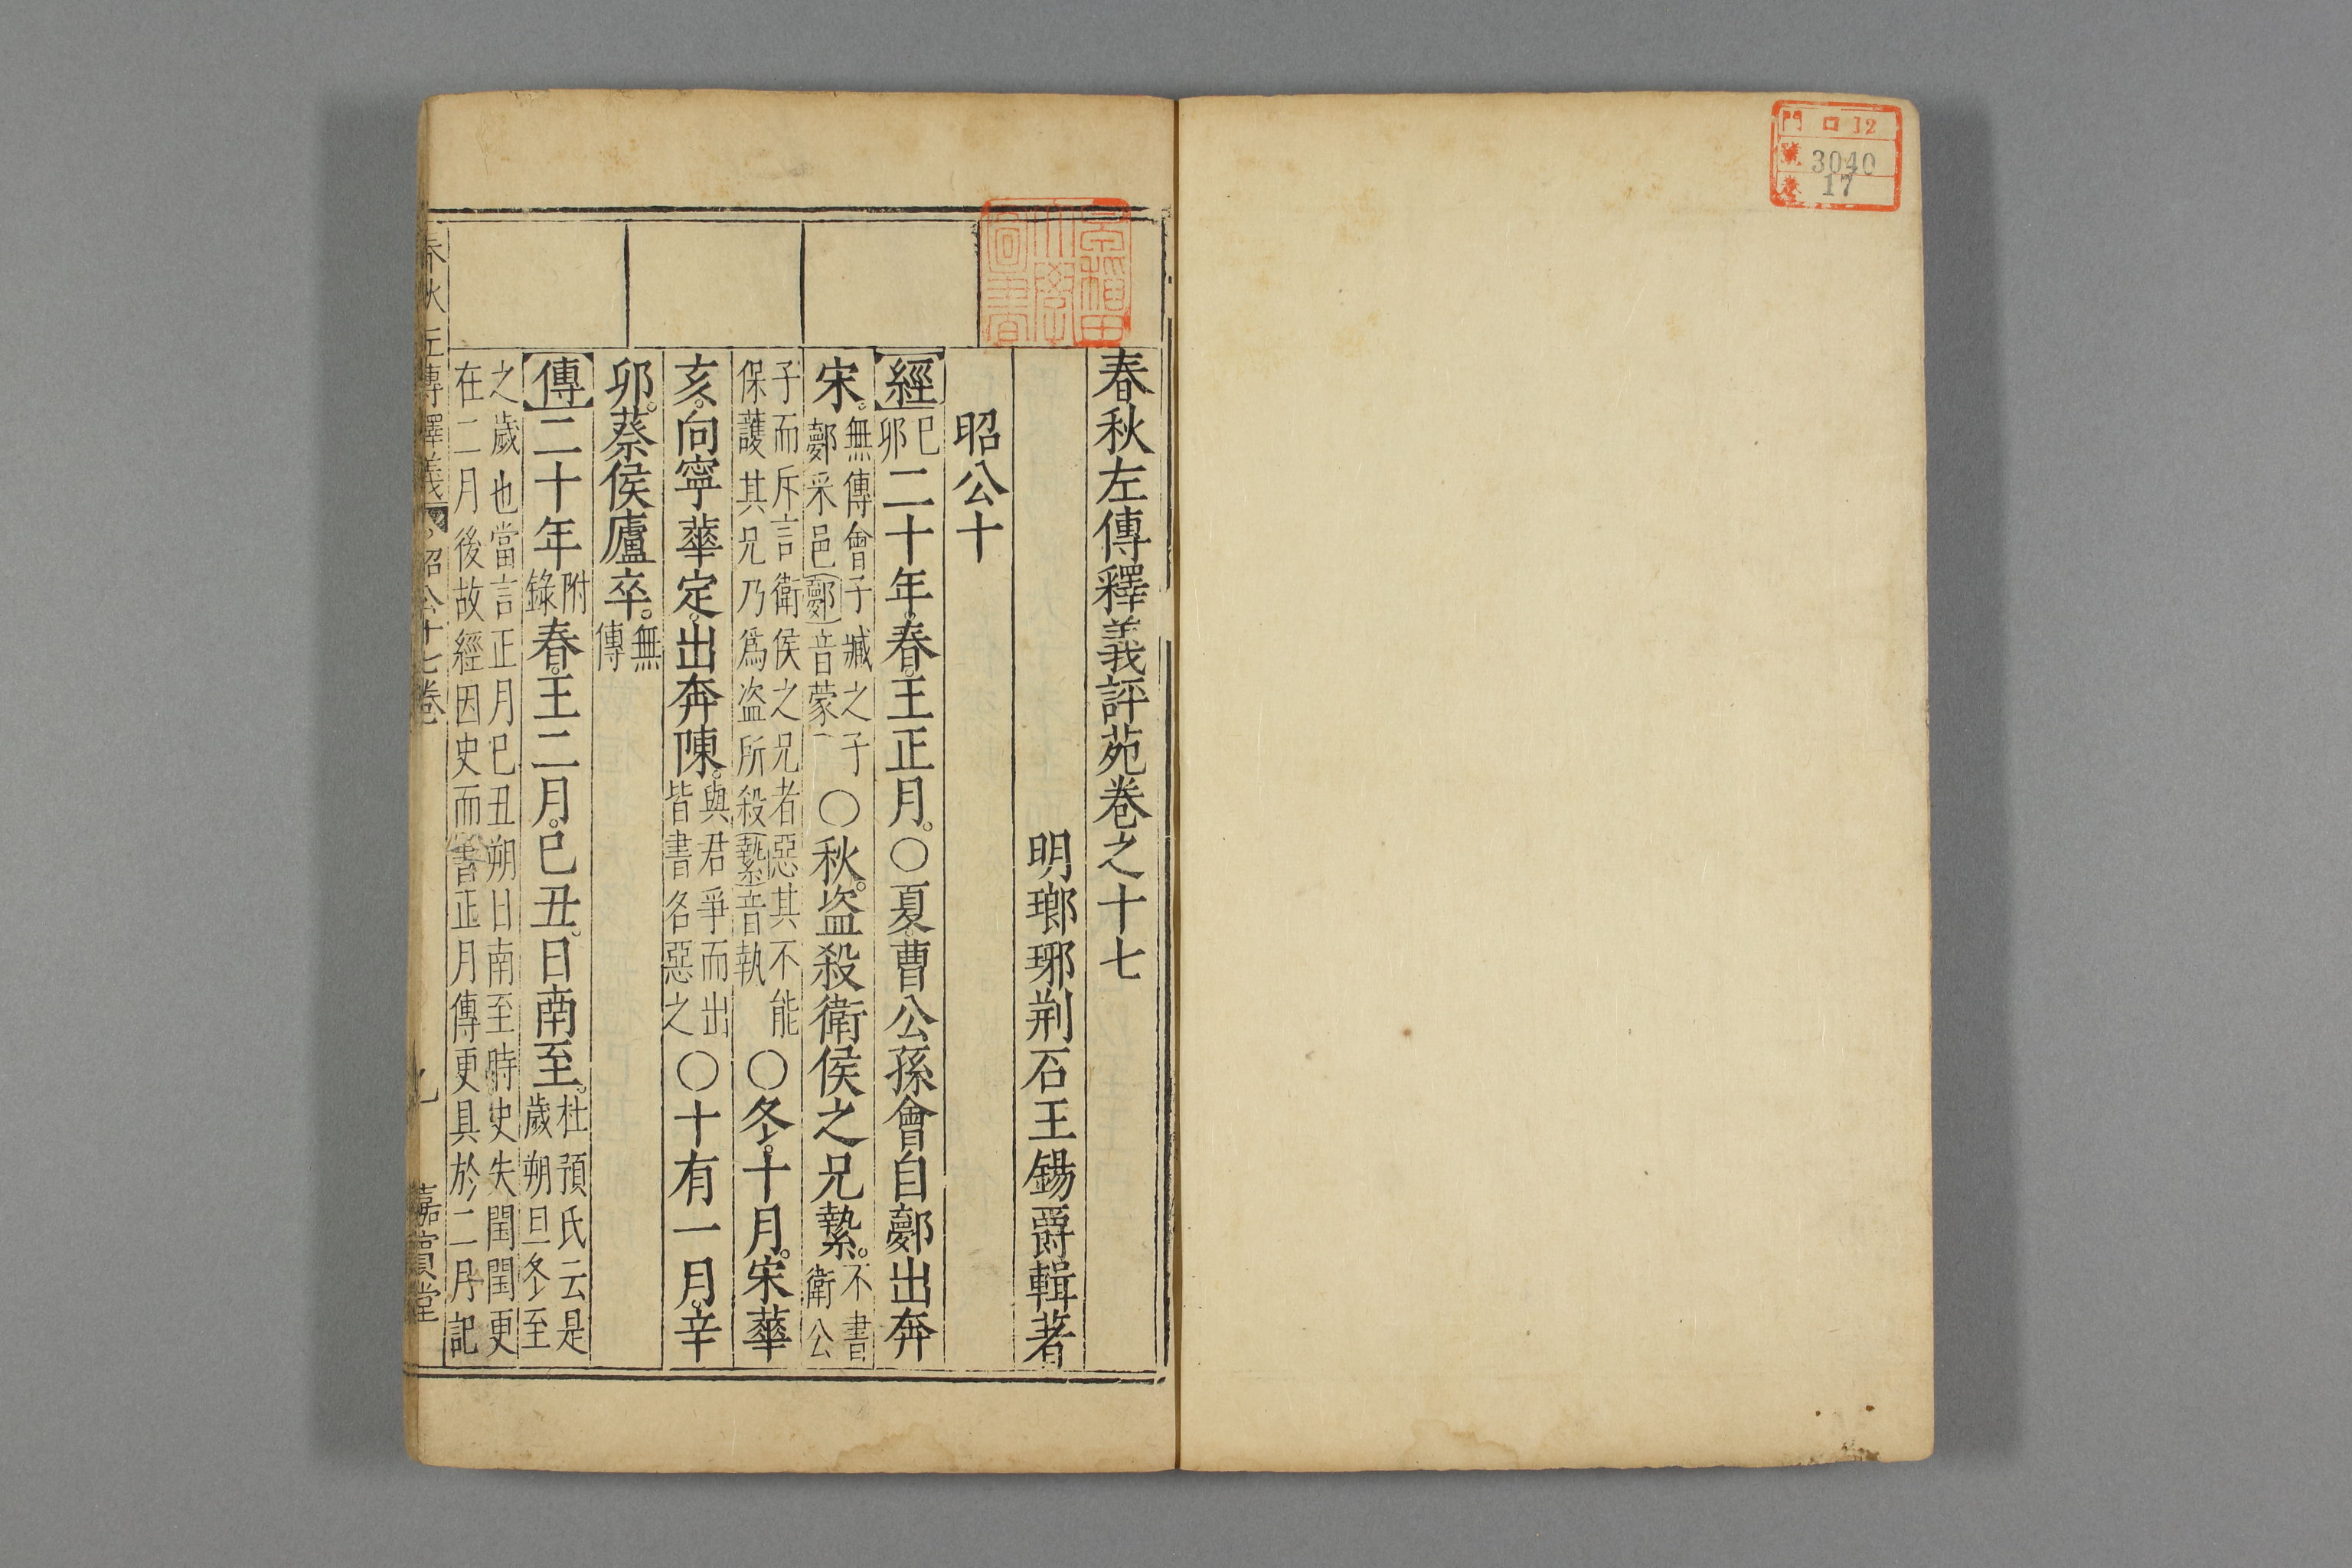 門 ロ 12
號 3040
卷 17
早稲田大學圖書
春秋左傳釋義評苑卷之十七
明瑯琊荆石王錫爵輯著
昭公十
經己卯二十年。春。王正月。〇夏。曹公孫會自鄸出奔
宋。無傳會子臧之子鄸采邑鄸音蒙〇秋。盜殺衛侯之兄縶。不書衛公
子而斥言衛侯之兄者惡其不能保護其兄乃爲盜所殺縶音執〇冬。十月。宋華
亥。向寧華定。出奔陳。與君爭而出皆書名惡之〇十有一月。辛
卯。蔡侯廬卒。無傳
傳二十年附錄春。王二月。己丑。日南至。杜預氏云是歲朔旦冬至
之歲也當言正月己丑朔日南至時史失閏閏更在二月後故經因史而書正月傳更具於二月記
春秋左傳釋義 昭公十七卷 嘉賓堂